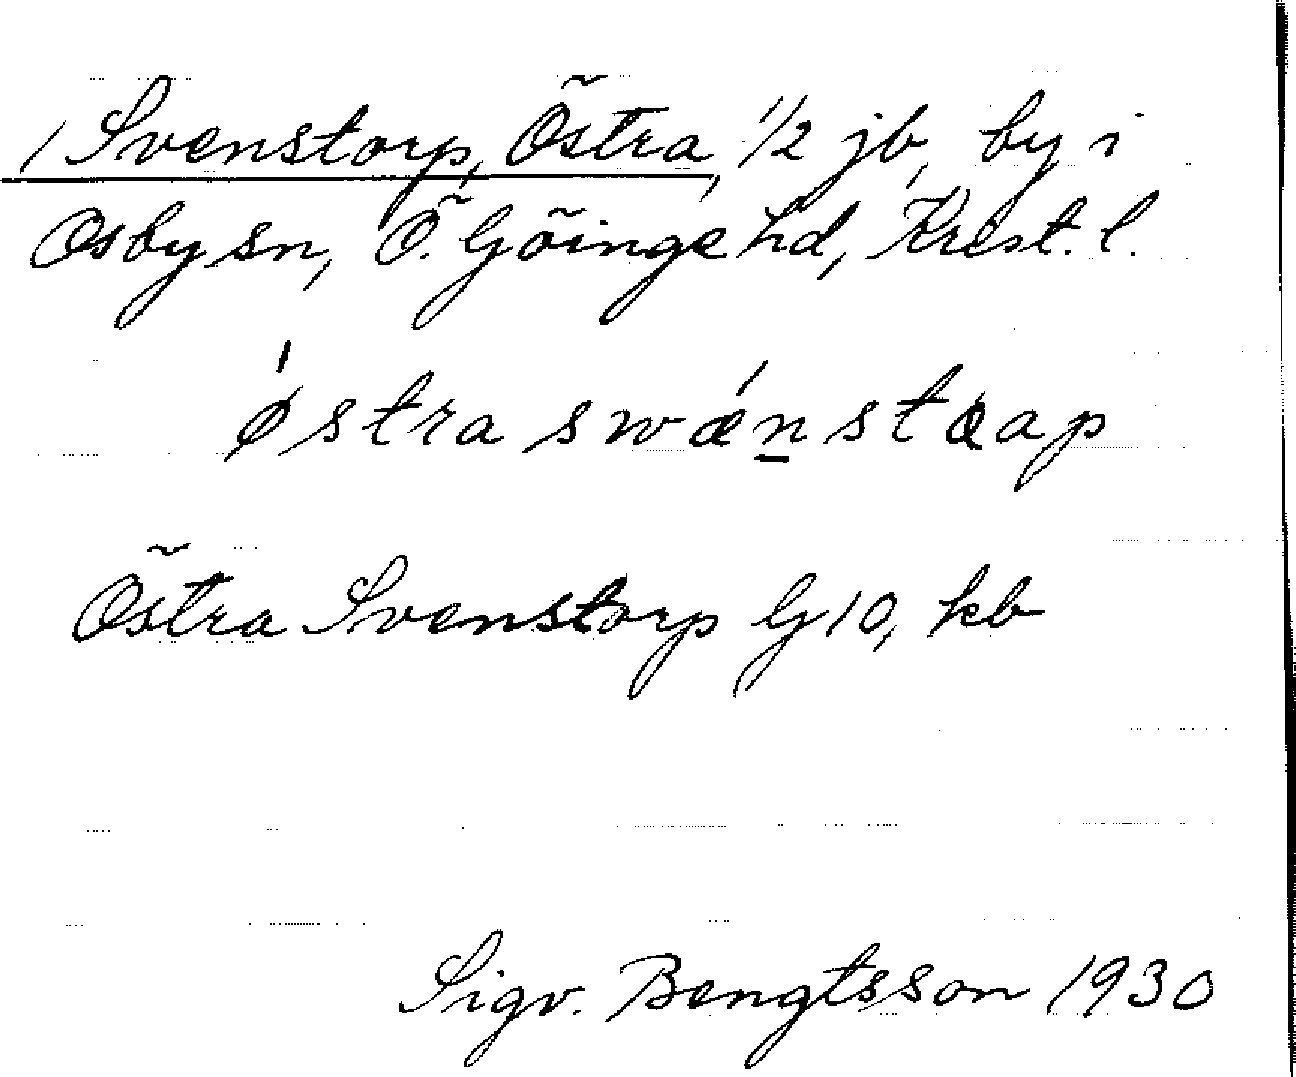 / Svenstorp, Östra, 1/2 jb, by i
Osby sn, Ö. Göinge hd, Krist. l.
ǿstra swǽn̲stɑap
Östra Svenstorp G10, kb
Sigv. Bengtsson 1930